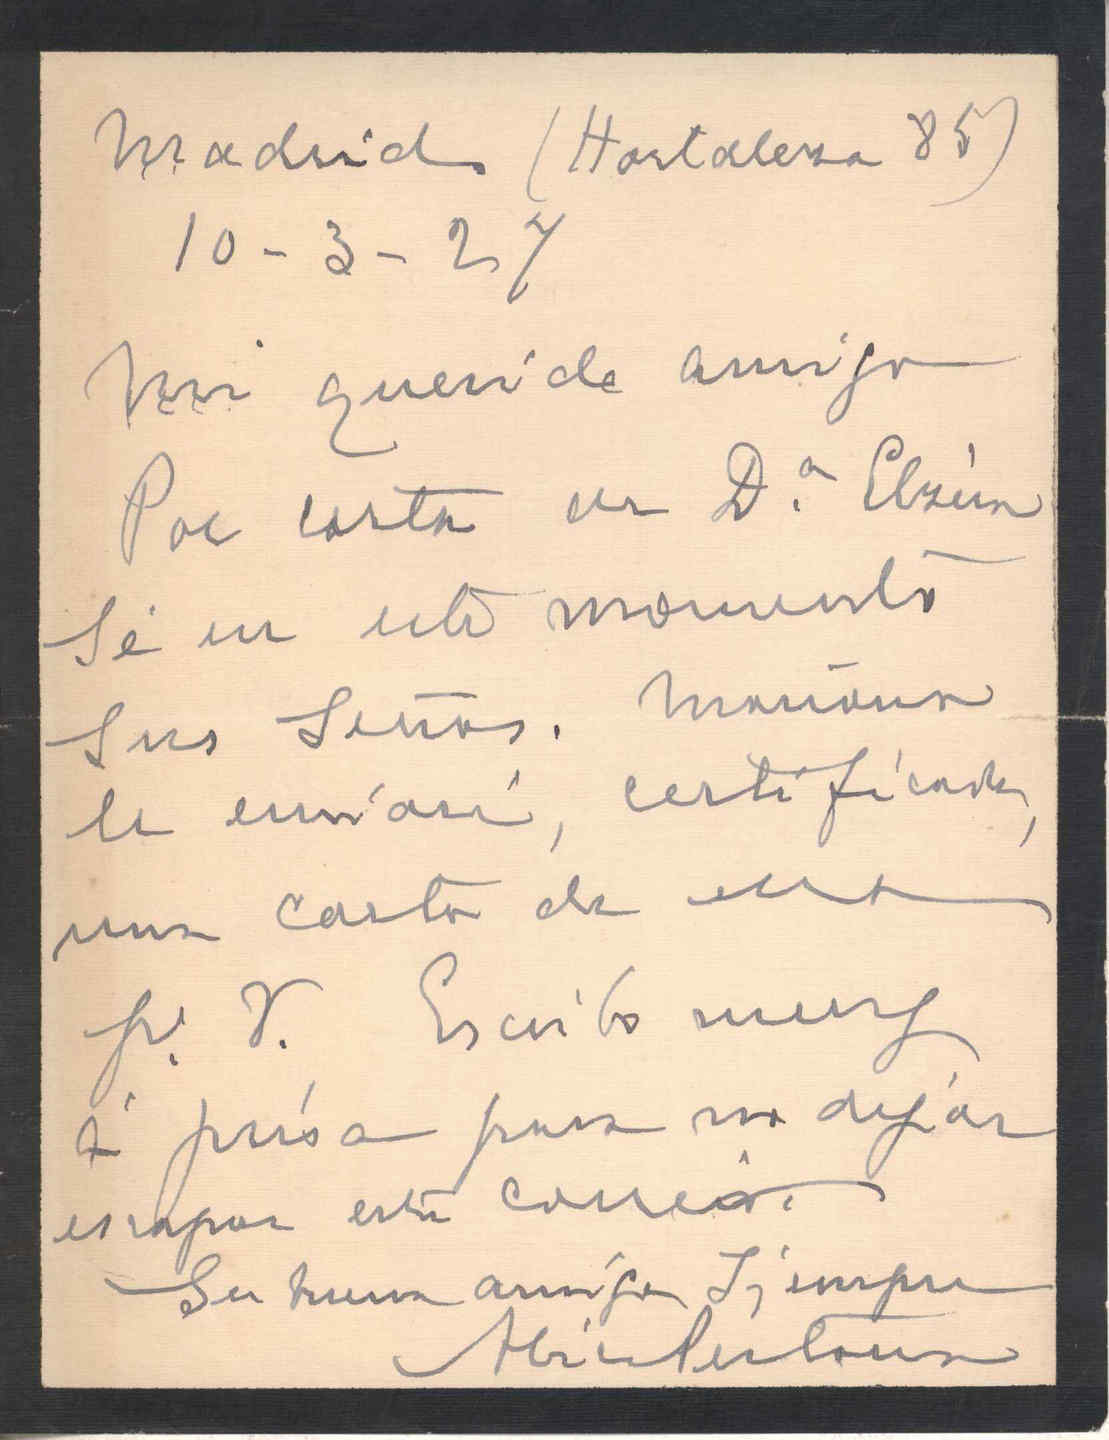 Madrid (Hortaleza 85)
10-3-27
Mi querido amigo
Por carta de D.ª Elzira
sé en este momento
sus señas. Mañana
le enviaré, certificada,
una carta de ella
pª. V. Escribo muy
á prisa para no dejar
escapar este correo.
Su buena amiga siempre